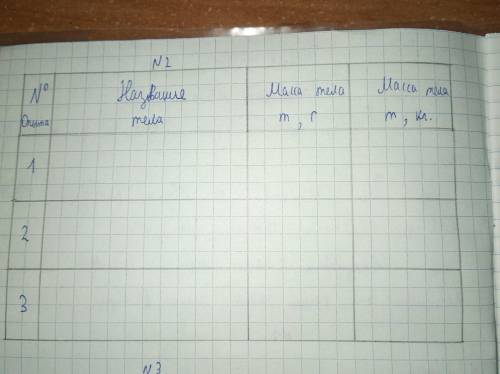 N2
№ Название Масса тела Масса тела
Опыта тела m, г m, кг.
1
2
3
N3